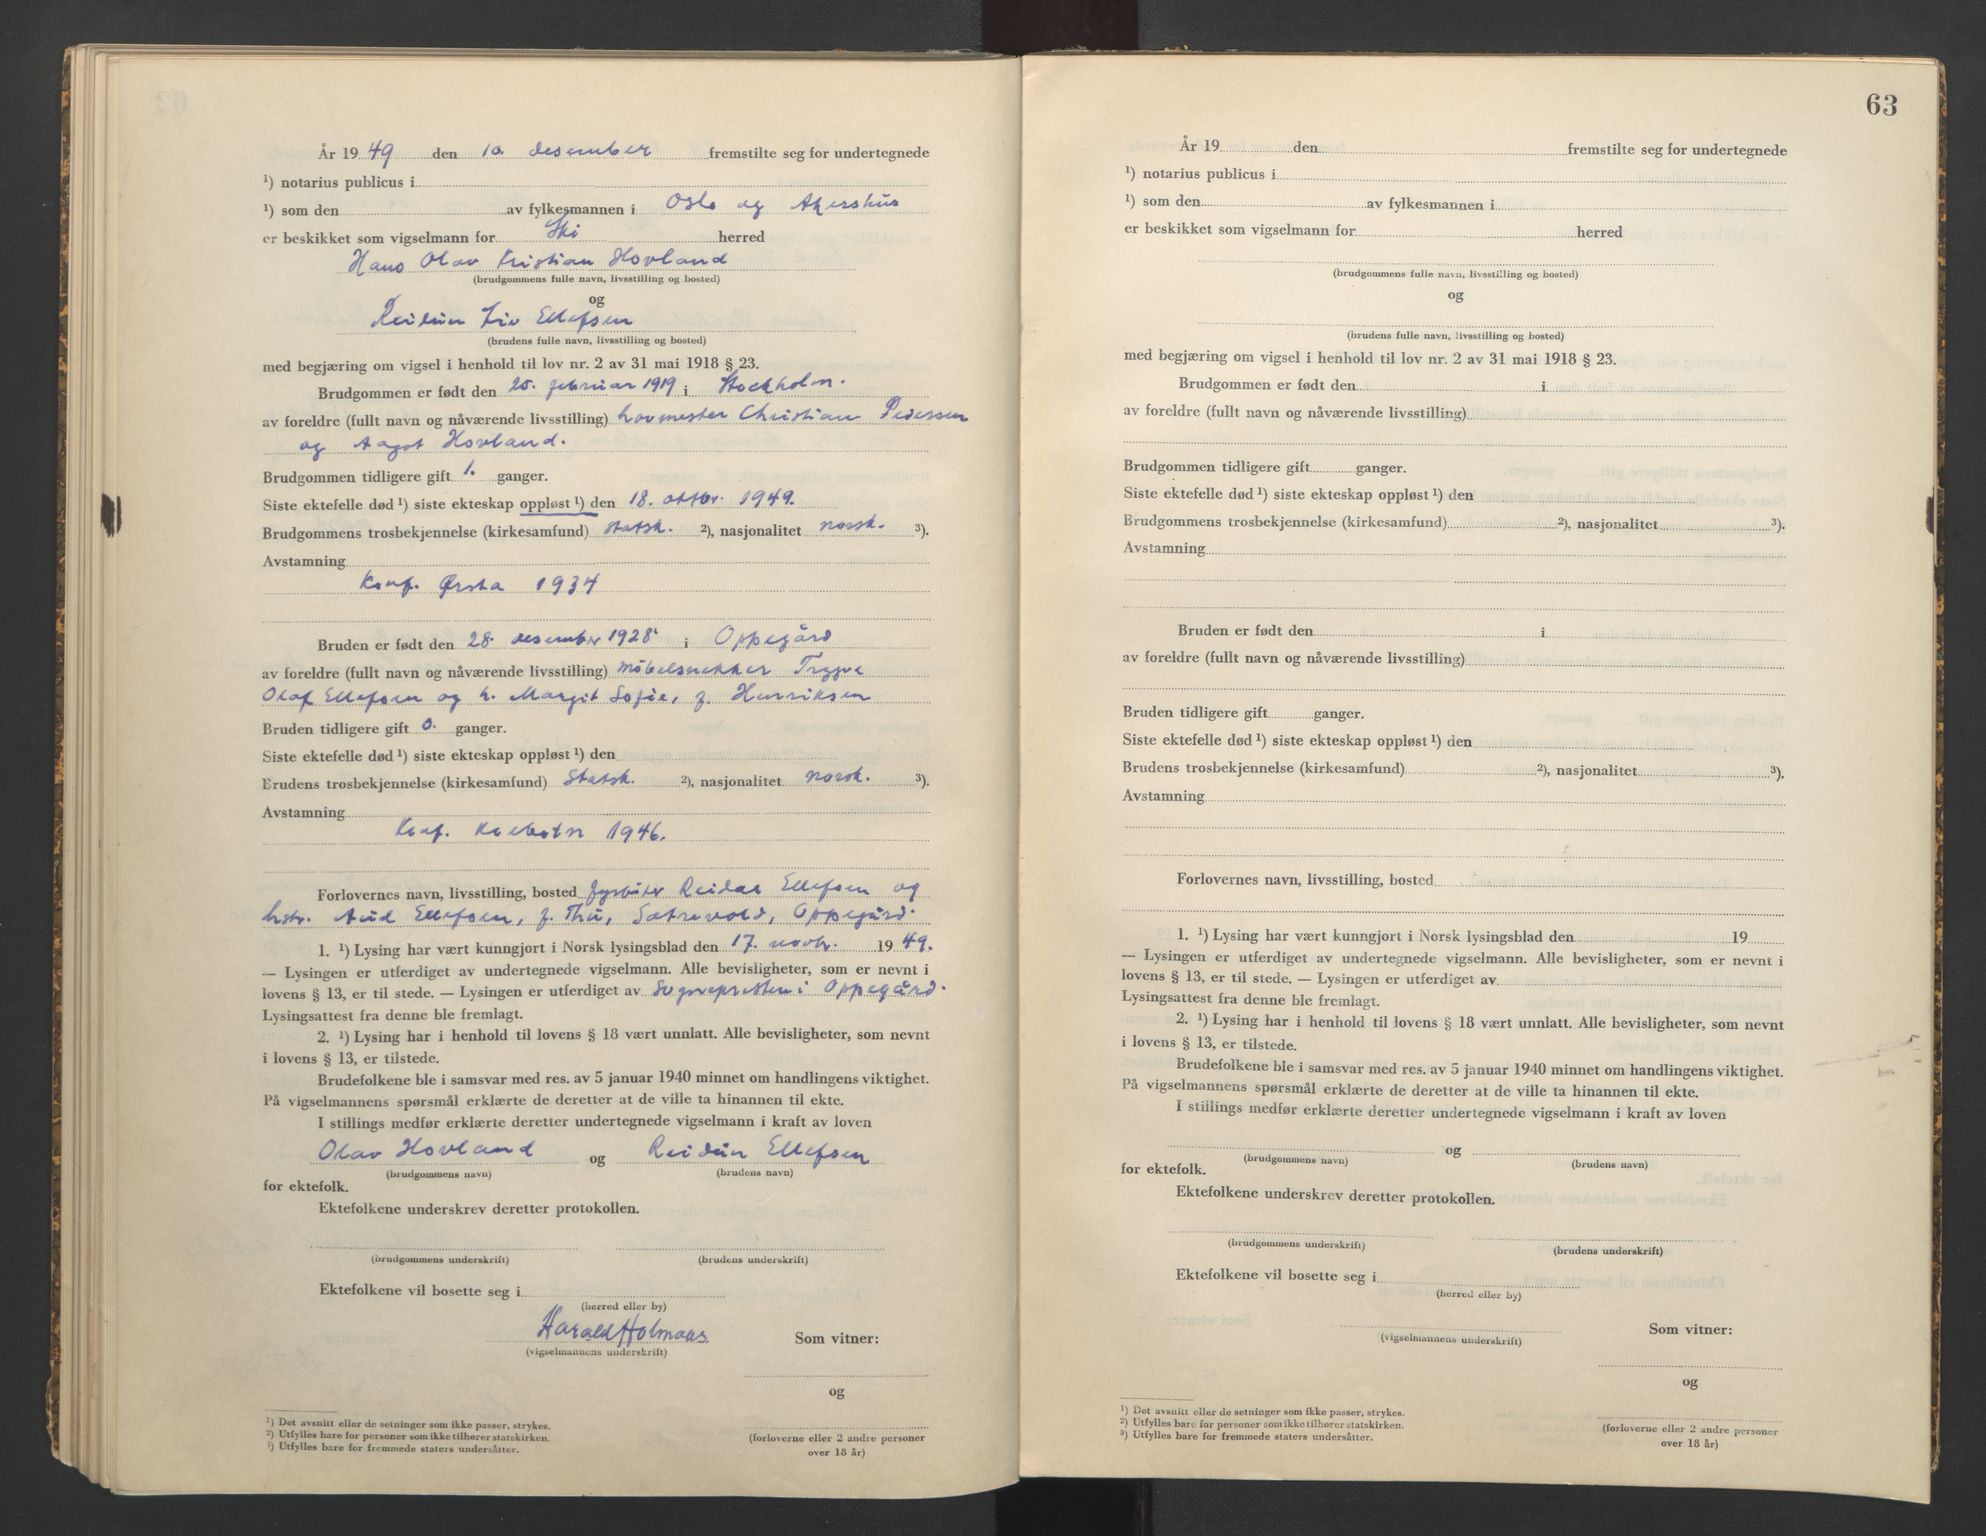 År 19 49 den 10. desember fremstilte seg for undertegnede
¹) notarius publicus i
¹) som den av fylkesmannen i Oslo og Akershus
er beskikket som vigselmann for Ski herred
Hans Olav Kristian Hovland
(brudgommens fulle navn, livsstilling og bosted)
og
Reidun Liv Ellefsen
(brudens fulle navn, livsstilling og bosted)
med begjæring om vigsel i henhold til lov nr. 2 av 31 mai 1918 § 23.
Brudgommen er født den 25. februar 1919 i Stockholm.
av foreldre (fullt navn og nåværende livsstilling) hovmester Christian Pedersen
og Aagot Hovland.
Brudgommen tidligere gift 1. ganger.
Siste ektefelle død ¹) siste ekteskap oppløst ¹) den 18. oktbr. 1949.
Brudgommens trosbekjennelse (kirkesamfund) statsk. ²), nasjonalitet norsk. ³).
Avstamning
Konf. Ørsta 1934
Bruden er født den 28. desember 1928 i Oppegård
av foreldre (fullt navn og nåværende livsstilling) møbelsnekker Trygve
Olaf Ellefsen og h. Margit Sofie, f. Henriksen
Bruden tidligere gift 0. ganger.
Siste ektefelle død ¹) siste ekteskap oppløst ¹) den
Brudens trosbekjennelse (kirkesamfund) Statsk. ²), nasjonalitet norsk. ³).
Avstamning
Konf. Kolbotn 1946.
Forlovernes navn, livsstilling, bosted fyrbøter Reidar Ellefsen og
hstr. Aud Ellefsen, f. Thu, Sætrevold, Oppegård.
1. ¹) Lysing har vært kunngjort i Norsk lysingsblad den 17. novbr. 19 49.
— Lysingen er utferdiget av undertegnede vigselmann. Alle bevisligheter, som er nevnt i
lovens § 13, er til stede. — Lysingen er utferdiget av Sognepresten i Oppegård.
Lysingsattest fra denne ble fremlagt.
2. ¹) Lysing har i henhold til lovens § 18 vært unnlatt. Alle bevisligheter, som nevnt
i lovens § 13, er tilstede.
Brudefolkene ble i samsvar med res. av 5 januar 1940 minnet om handlingens viktighet.
På vigselmannens spørsmål erklærte de deretter at de ville ta hinannen til ekte.
I stillings medfør erklærte deretter undertegnede vigselmann i kraft av loven
Olav Hovland og Reidun Ellefsen
(brudgommens navn) (brudens navn)
for ektefolk.
Ektefolkene underskrev deretter protokollen.
(brudgommens underskrift) (brudens underskrift)
Ektefolkene vil bosette seg i
(herred eller by)
Harald Holmaas Som vitner:
(vigselmannens underskrift)
og
(forloverne eller 2 andre personer
over 18 år)
¹) Det avsnitt eller de setninger som ikke passer, strykes.
²) Utfylles bare for personer som ikke tilhører statskirken.
³) Utfylles bare for fremmede staters undersåtter.
63
År 19 den fremstilte seg for undertegnede
¹) notarius publicus i
¹) som den av fylkesmannen i
er beskikket som vigselmann for herred
(brudgommens fulle navn, livsstilling og bosted)
og
(brudens fulle navn, livsstilling og bosted)
med begjæring om vigsel i henhold til lov nr. 2 av 31 mai 1918 § 23.
Brudgommen er født den i
av foreldre (fullt navn og nåværende livsstilling)
Brudgommen tidligere gift ganger.
Siste ektefelle død ¹) siste ekteskap oppløst ¹) den
Brudgommens trosbekjennelse (kirkesamfund) ²), nasjonalitet ³).
Avstamning
Bruden er født den i
av foreldre (fullt navn og nåværende livsstilling)
Bruden tidligere gift ganger.
Siste ektefelle død ¹) siste ekteskap oppløst ¹) den
Brudens trosbekjennelse (kirkesamfund) ²), nasjonalitet ³).
Avstamning
Forlovernes navn, livsstilling, bosted
1. ¹) Lysing har vært kunngjort i Norsk lysingsblad den 19
— Lysingen er utferdiget av undertegnede vigselmann. Alle bevisligheter, som er nevnt i
lovens § 13, er til stede. — Lysingen er utferdiget av
Lysingsattest fra denne ble fremlagt.
2. ¹) Lysing har i henhold til lovens § 18 vært unnlatt. Alle bevisligheter, som nevnt
i lovens § 13, er tilstede.
Brudefolkene ble i samsvar med res. av 5 januar 1940 minnet om handlingens viktighet.
På vigselmannens spørsmål erklærte de deretter at de ville ta hinannen til ekte.
I stillings medfør erklærte deretter undertegnede vigselmann i kraft av loven
og
(brudgommens navn) (brudens navn)
for ektefolk.
Ektefolkene underskrev deretter protokollen.
(brudgommens underskrift) (brudens underskrift)
Ektefolkene vil bosette seg i
(herred eller by)
Som vitner:
(vigselmannens underskrift)
og
(forloverne eller 2 andre personer
over 18 år)
¹) Det avsnitt eller de setninger som ikke passer, strykes.
²) Utfylles bare for personer som ikke tilhører statskirken.
³) Utfylles bare for fremmede staters undersåtter.